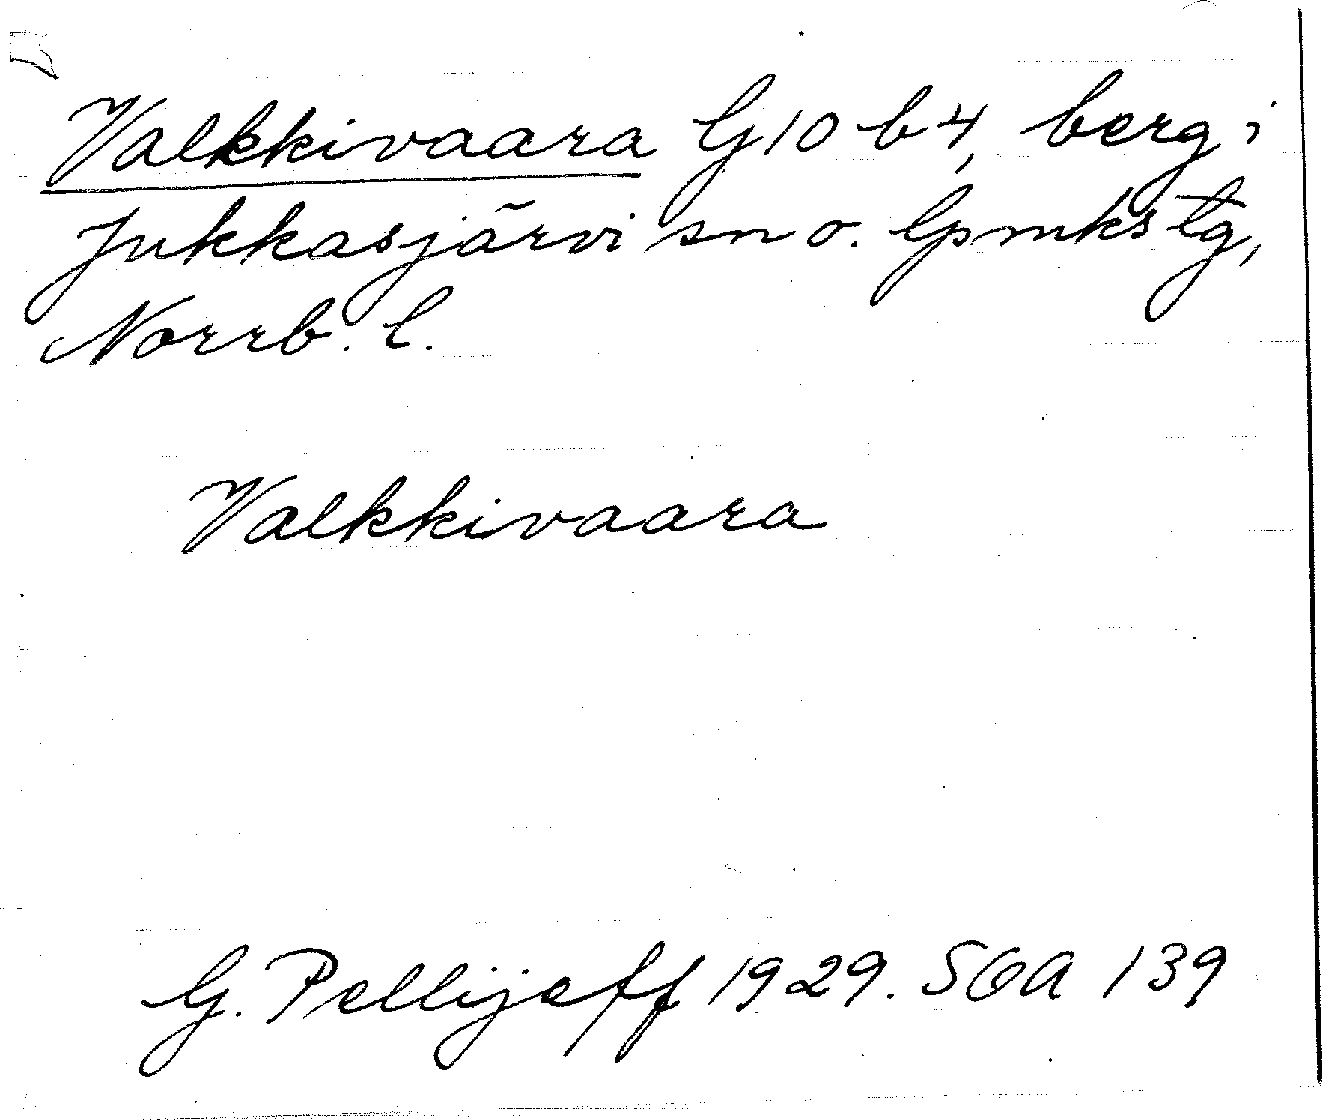 Valkkivaara G10 b4, berg i
Jukkasjärvi sn o. lpmks tg,
Norrb. l.
Valkkivaara
G. Pellijeff 1929. SOA 139